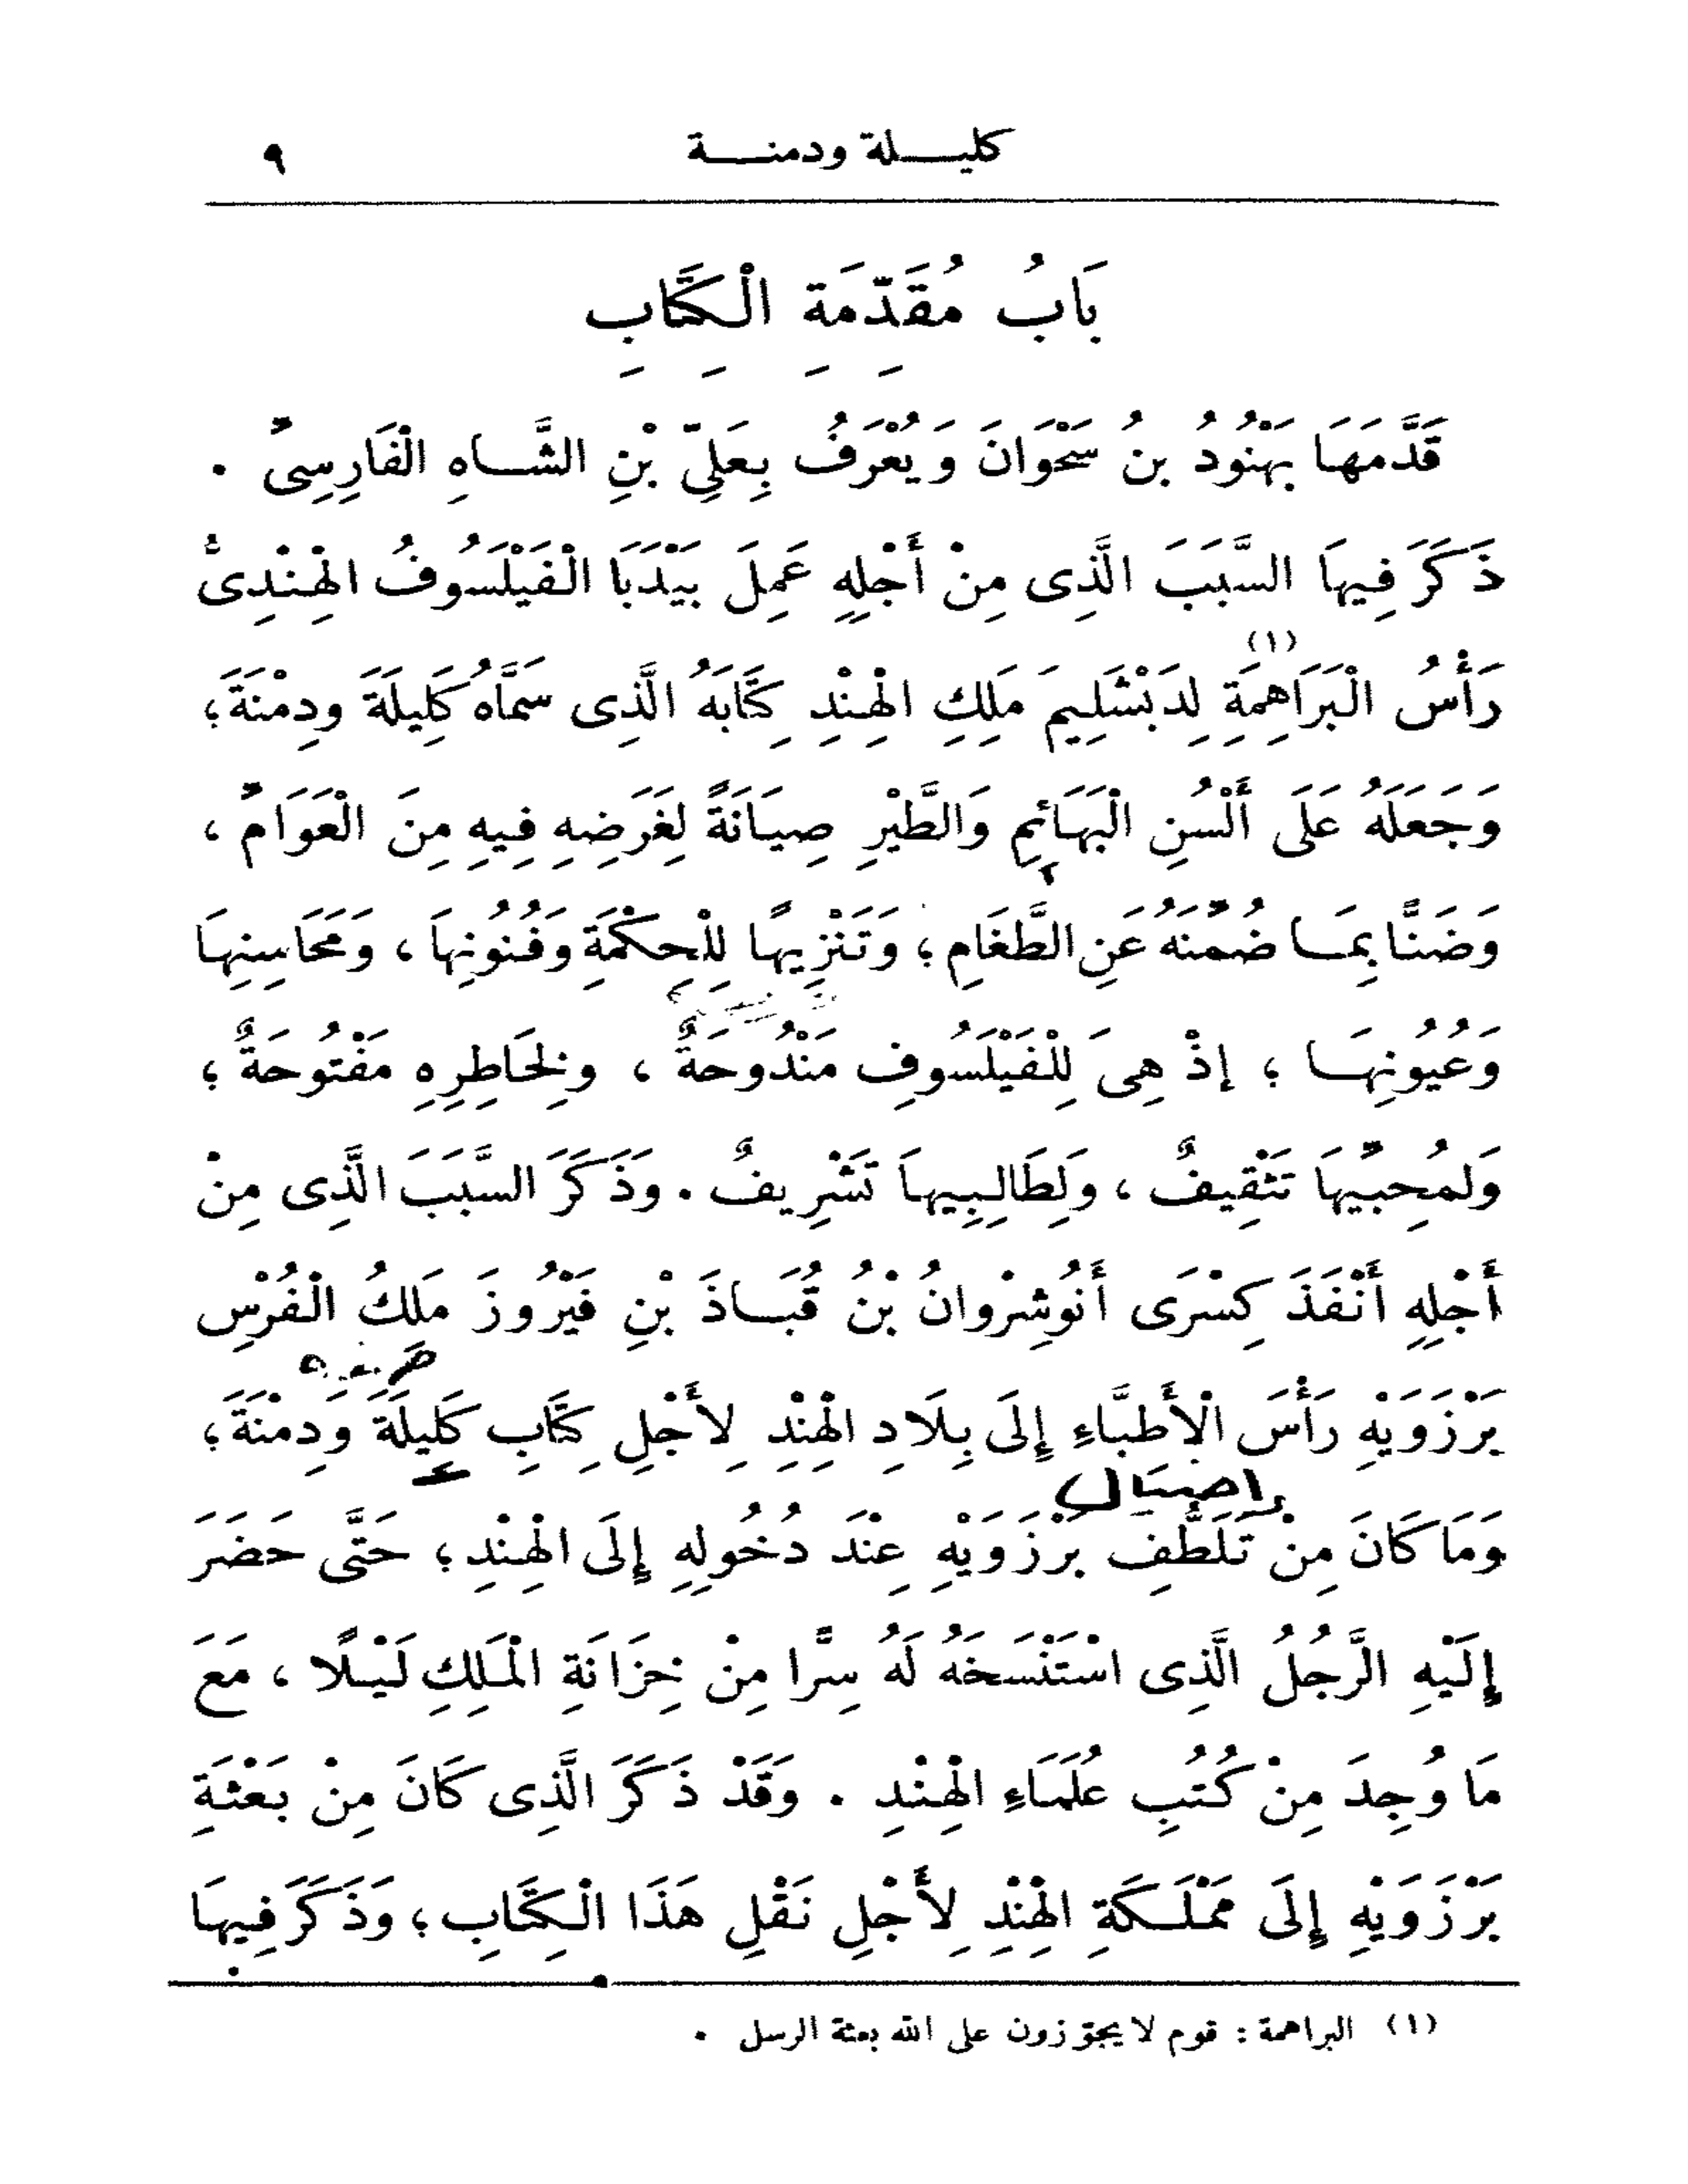 كليلة ودمنة ٩
بَابُ مُقَدِّمَةِ الْكِتَابِ
قَدَّمَهَا بَهْنُودُ بنُ سَحْوَانَ وَيُعْرَفُ بِعَلِيِّ بْنِ الشَّاهِ الْفَارِسِىِّ .
ذَكَرَ فِيهَا السَّبَبَ الَّذِى مِنْ أَجْلِهِ عَمِلَ بَيْدَبَا الْفَيْلَسُوفُ الْهِنْدِىُّ
رَأْسُ الْبَرَاهِمَةِ (١) لِدَبْشَلِيمَ مَلِكِ الْهِنْدِ كِتَابَهُ الَّذِى سَمَّاهُ كَلِيلَةَ ودِمْنَةَ؛
وَجَعَلَهُ عَلَى أَلْسُنِ الْبَهَائِمِ وَالطَّيْرِ صِيَانَةً لِغَرَضِهِ فِيهِ مِنَ الْعَوَامِّ ،
وَضَنًّا بِمَا ضُمِّنَهُ عَنِ الطَّغَامِ ؛ وَتَنْزِيهًا لِلْحِكْمَةِ وَفُنُونِهَا ، وَمَحَاسِنِهَا
وَعُيُونِهَا ؛ إِذْ هِىَ لِلْفَيْلَسُوفِ مَنْدُوحَةٌ ، وِلِخَاطِرِهِ مَفْتُوحَةٌ ؛
وَلِمُحِبِّيهَا تَثْقِيفٌ ، وَلِطَالِبِيهَا تَشْرِيفٌ . وَذَكَرَ السَّبَبَ الَّذِى مِنْ
أَجْلِهِ أَنْفَذَ كِسْرَى أَنُوشِرْوانُ بْنُ قُبَاذَ بْنِ فَيْرُوزَ مَلِكُ الْفُرْسِ
بَرْزَوَيْهِ رَأْسَ الْأَطِبَّاءِ إِلَى بِلَادِ الْهِنْدِ لِأَجْلِ كِتَابِ كَلِيلَةَ وَدِمْنَةَ؛
وَمَا كَانَ مِنْ تَلَطُّفِ بَرْزَوَيْهِ عِنْدَ دُخُولِهِ إِلَى الْهِنْدِ ؛ حَتَّى حَضَرَ
إِلَيْهِ الرَّجُلُ الَّذِى اسْتَنْسَخَهُ لَهُ سِرًّا مِنْ خِزَانَةِ الْمَلِكِ لَيْلًا ، مَعَ
مَا وُجِدَ مِنْ كُتُبِ عُلَمَاءِ الْهِنْدِ . وَقَدْ ذَكَرَ الَّذِى كَانَ مِنْ بَعْثَةِ
بَرْزَوَيْهِ إِلَى مَمْلَكَةِ الْهِنْدِ لِأَجْلِ نَقْلِ هَذَا الْكِتَابِ ؛ وَذَكَرَ فِيهَا
(١) البراهمة : قوم لا يجوّزون على الله بعثة الرسل .